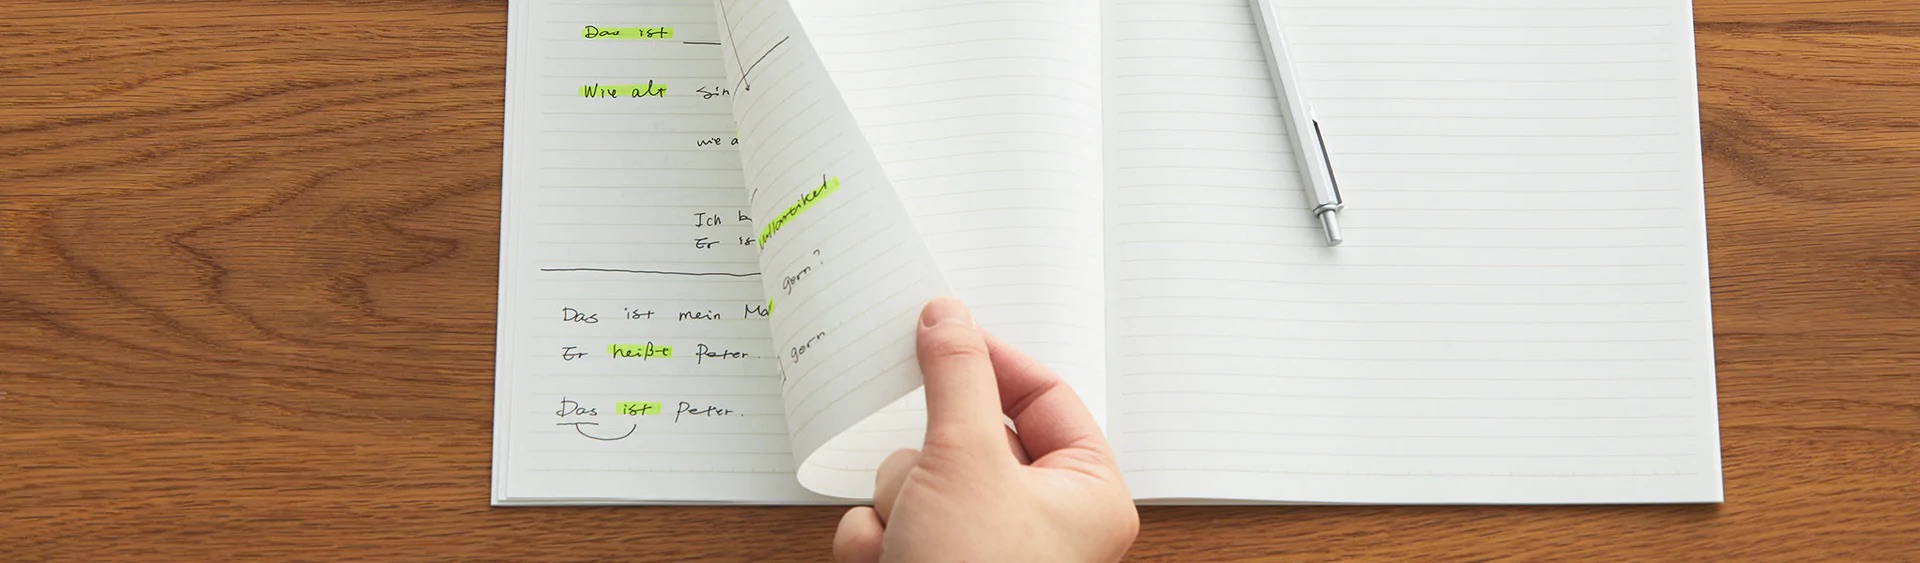 Das ist
Wie alt Sin
wie a
Ich b
Er is
Das ist mein Ma
Er heißt Peter.
Das ist Peter.
Nullartikel
gern?
gern